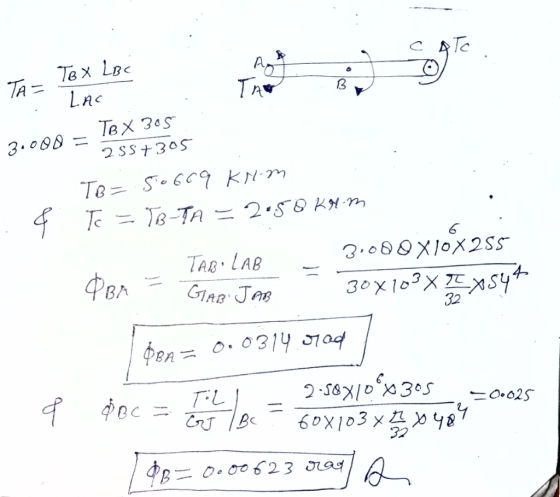 A B C Tc
TA
TA = TB × LBC / LAC
3.088 = TB × 305 / 255 + 305
TB = 5.669 KN·m
& Tc = TB - TA = 2.58 KN·m
ΦBA = TAB · LAB / GAB · JAB = 3.088 × 10^6 × 255 / 30 × 10^3 × π/32 × 54^4
ΦBA = 0.0314 rad
& ΦBC = T·L / GJ |BC = 2.58 × 10^6 × 305 / 60 × 103 × π/32 × 48^4 = 0.025
ΦB = 0.00623 rad